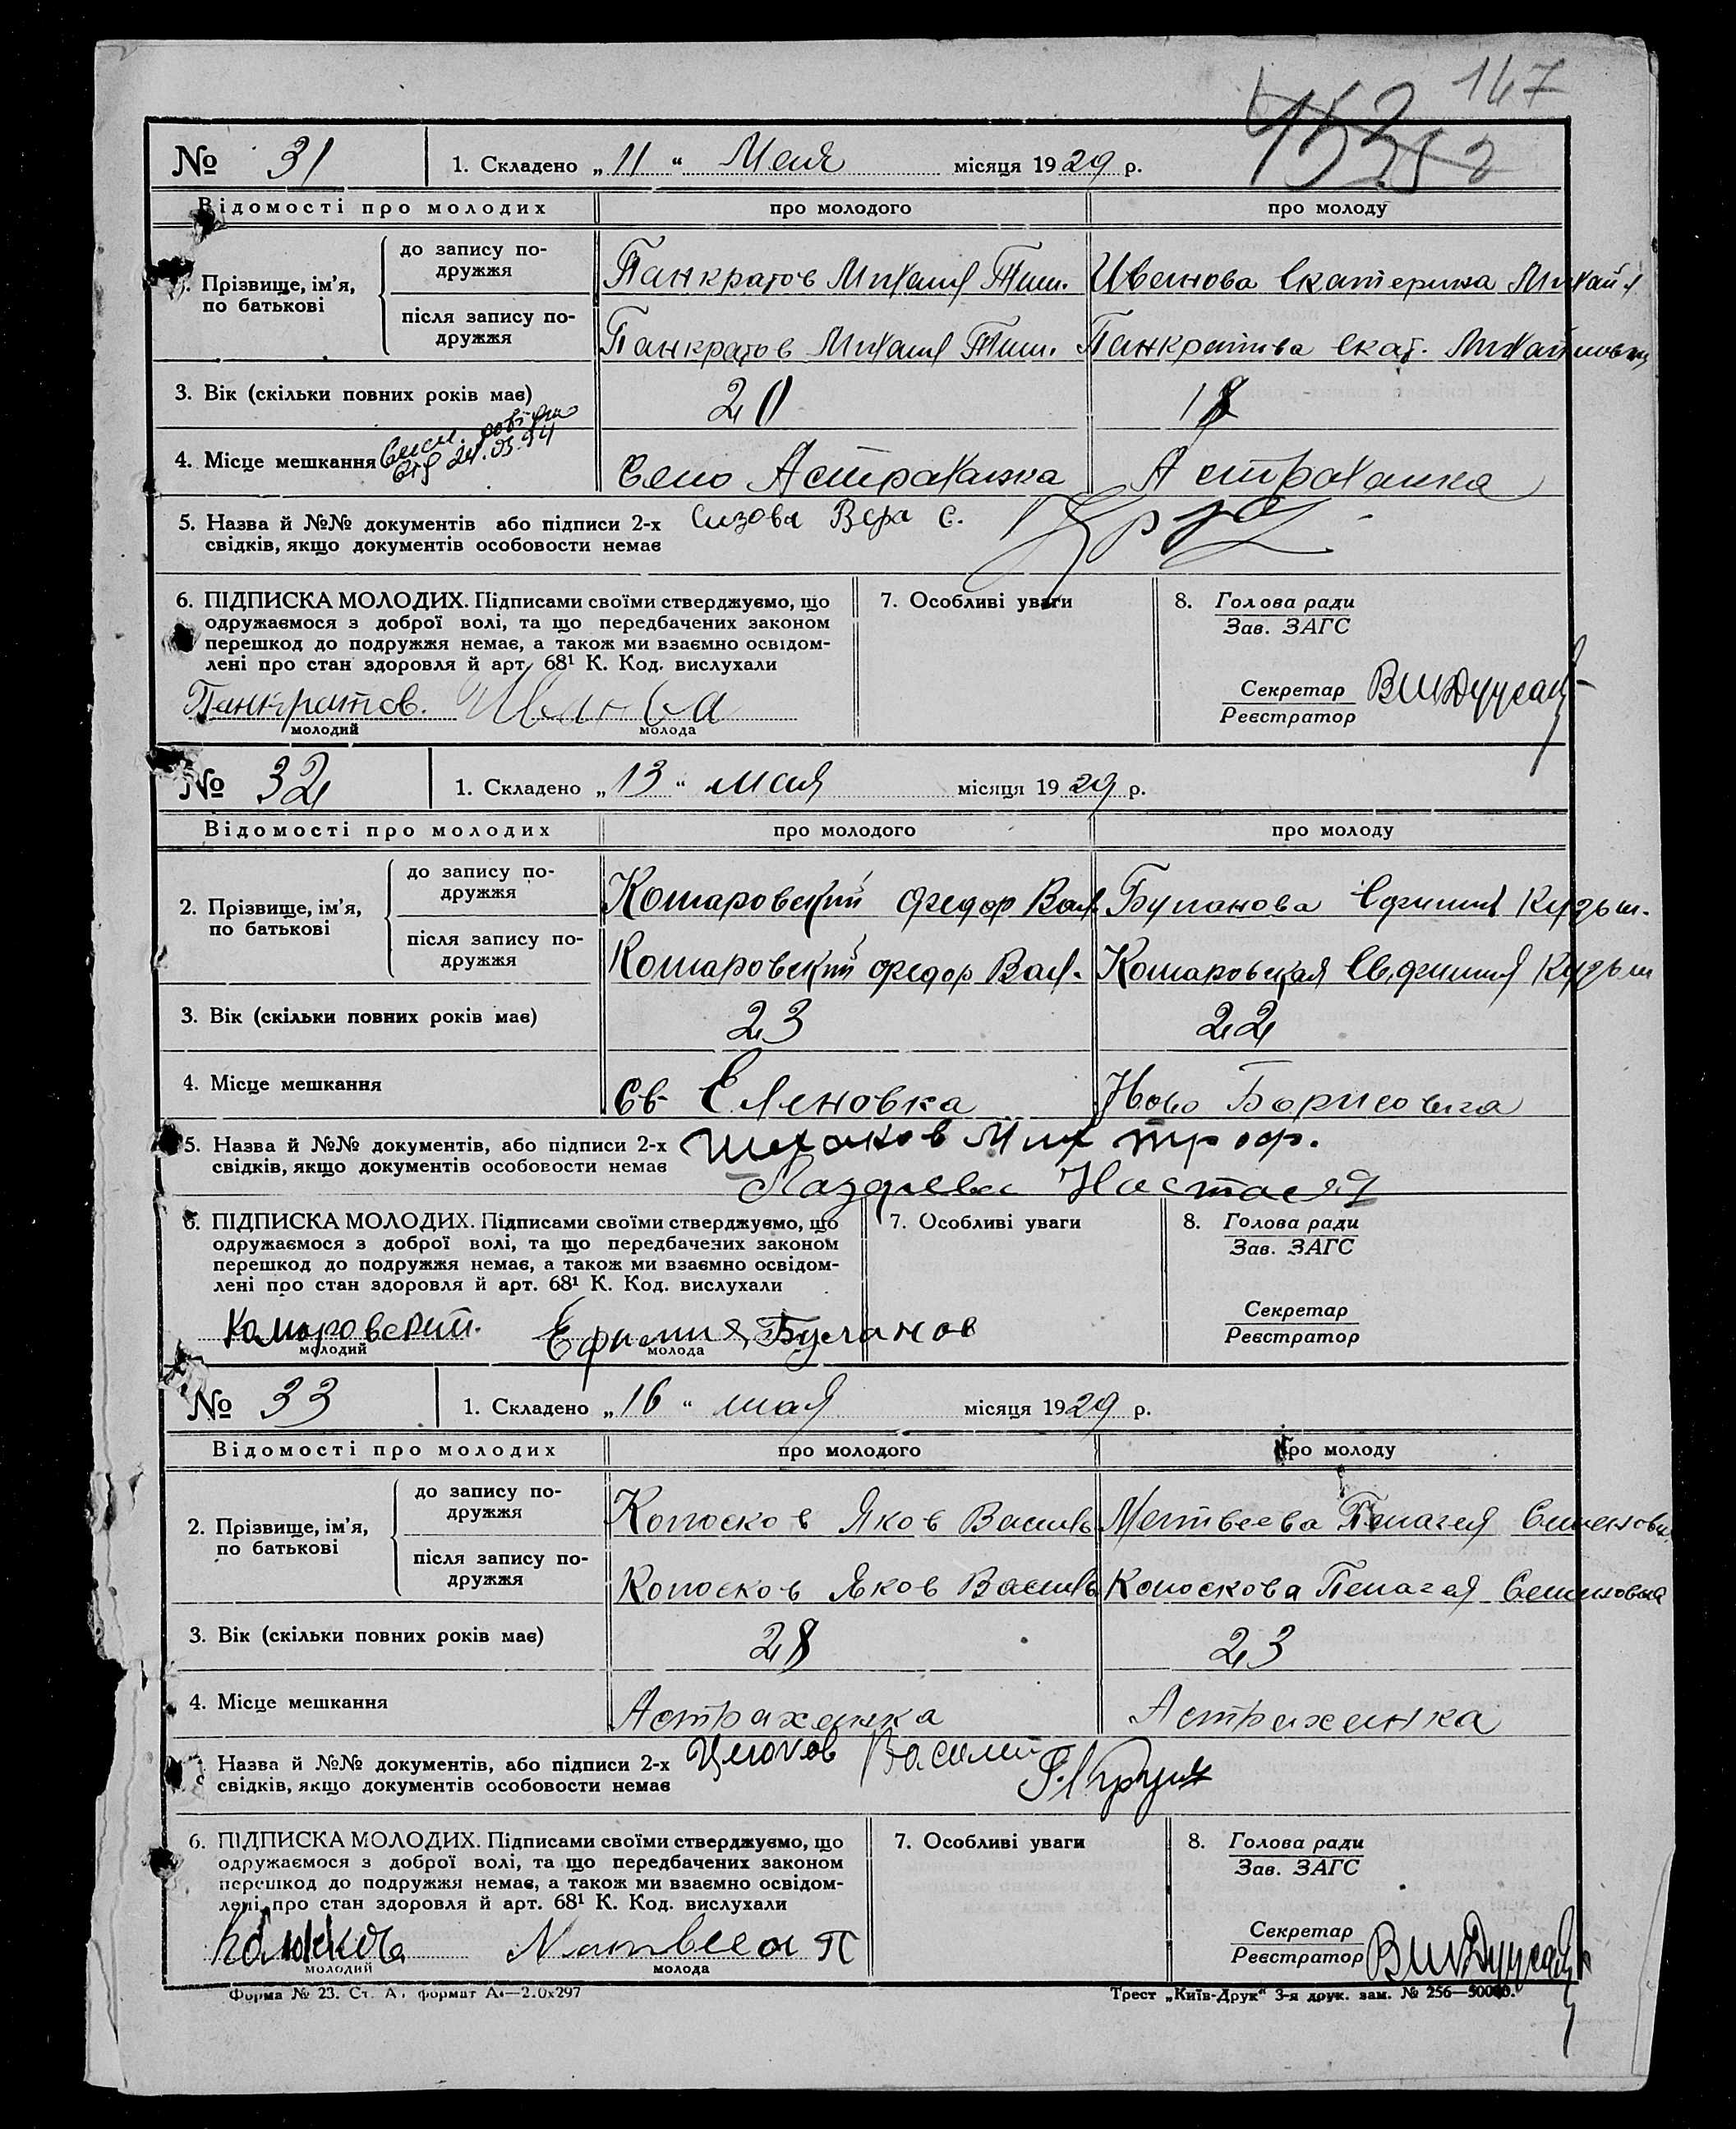 147
№ 31 1. Складено „11“ Мая місяця 1929 р.
Відомості про молодих про молодого про молоду
Прізвище, ім'я, по батькові
до запису по-
дружжя
Панкратов Михаил Тим. Иванова Екатерина Михайл
після запису по-
дружжя
Панкратов Михаил Тим. Панкратова Екат. Михайловна
3. Вік (скільки повних років має) 20 18
4. Місце мешкання Село Астраханка Астраханка
5. Назва й №№ документів або підписи 2-х Сизова Вера С.
свідків, якщо документів особовости немає
6. ПІДПИСКА МОЛОДИХ. Підписами своїми стверджуємо, що
одружаємося з доброї волі, та що передбачених законом
перешкод до подружжя немає, а також ми взаємно освідом-
лені про стан здоровля й арт. 68¹ К. Код. вислухали
Панкратов. Иванова
молодий молода
7. Особливі уваги
8. Голова ради
Зав. ЗАГС
Секретар
Реєстратор
№ 32 1. Складено „13“ мая місяця 1929 р.
Відомості про молодих про молодого про молоду
2. Прізвище, ім'я,
по батькові
до запису по-
дружжя
Комаровский Федор Вас. Буланова Ефимия Кузьм.
після запису по-
дружжя
Комаровский Федор Вас. Комаровская Евфимия Кузьм
3. Вік (скільки повних років має) 23 22
4. Місце мешкання Св Еленовка Ново Борисовка
5. Назва й №№ документів, або підписи 2-х Мих троф.
свідків, якщо документів особовости немає Лазарева Настасия
6. ПІДПИСКА МОЛОДИХ. Підписами своїми стверджуємо, що
одружаємося з доброї волі, та що передбачених законом
перешкод до подружжя немає, а також ми взаємно освідом-
лені про стан здоровля й арт. 68¹ К. Код. вислухали
Ефимия Буланов
молодий молода
7. Особливі уваги
8. Голова ради
Зав. ЗАГС
Секретар
Реєстратор
№ 33 1. Складено „16“ мая місяця 1929 р.
Відомості про молодих про молодого про молоду
2. Прізвище, ім'я,
по батькові
до запису по-
дружжя
Колосков Яков Василь Матвеева Пелагея Семеновн
після запису по-
дружжя
Колосков Яков Василь Колоскова Пелагея Семеновна
3. Вік (скільки повних років має) 28 23
4. Місце мешкання Астраханка Астраханка
Назва й №№ документів, або підписи 2-х Василий
свідків, якщо документів особовости немає
6. ПІДПИСКА МОЛОДИХ. Підписами своїми стверджуємо, що
одружаємося з доброї волі, та що передбачених законом
перешкод до подружжя немає, а також ми взаємно освідом-
лені про стан здоровля й арт. 68¹ К. Код. вислухали
Матвеева П
молодий молода
7. Особливі уваги
8. Голова ради
Зав. ЗАГС
Секретар
Реєстратор
Форма № 23. Ст. А, формат А₄—210х297 Трест „Київ-Друк“ 3-я друк. зам. № 256—50000.